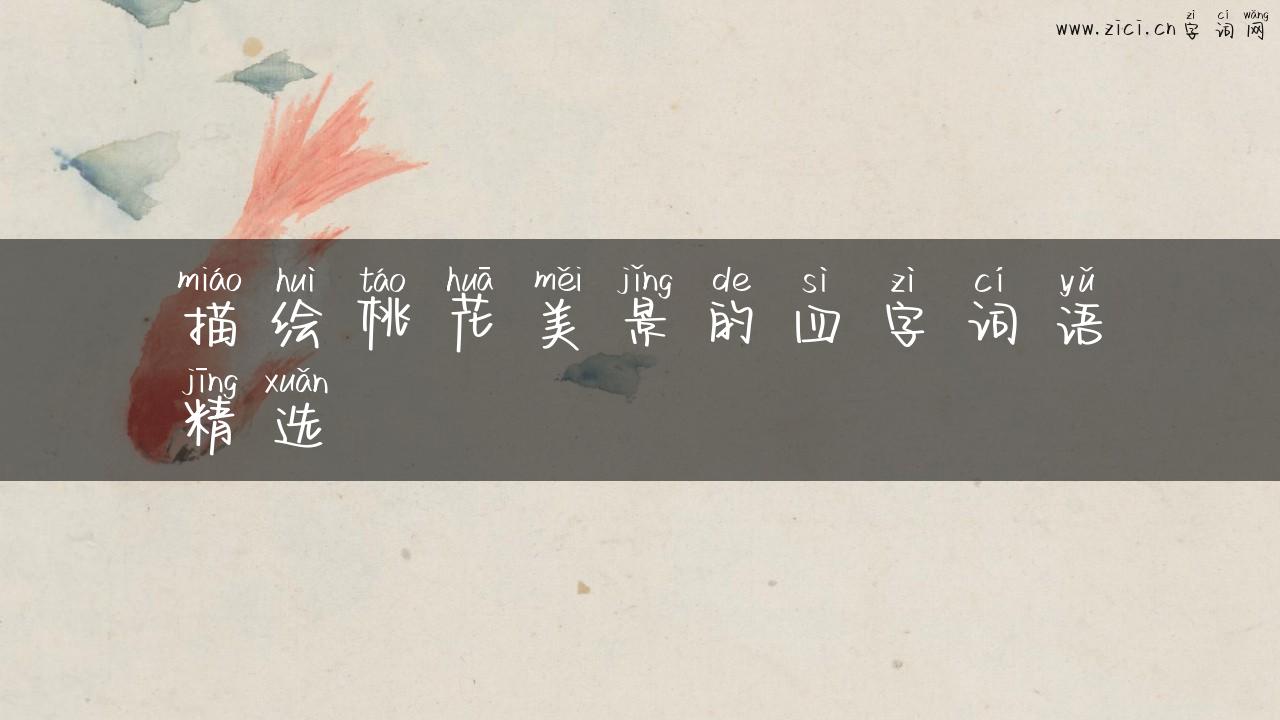 zì cí wǎng
www.zici.cn 字词网
miáo huì táo huā měi jǐng de sì zì cí yǔ
描绘桃花美景的四字词语
jīng xuǎn
精选